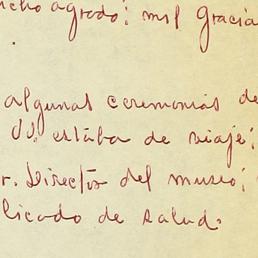 ucho agrado; mil gracia
.
algunas ceremonias de
Ud. estaba de viaje;
r. Director del museo;
licado de salud.